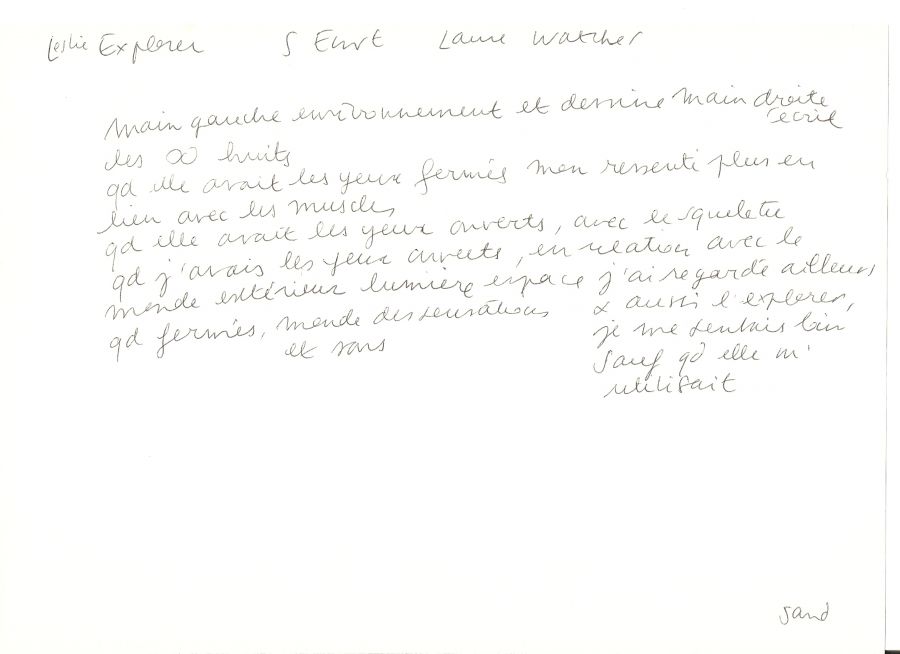 Leslie Explorer S Envt Laure Watcher
main gauche environnement et dessine main droite
écrit
les ∞ bruits
qd elle avait les yeux fermés mon ressenti plus en
lien avec les muscles
qd elle avait les yeux ouverts, avec le squelette
qd j'avais les yeux ouverts, en relation avec le
monde extérieur lumière espace
qd fermés, monde des sensations
et sons
j'ai regardé ailleurs
& aussi l'explorer,
je me sentais loin
sauf qd elle m'
utilisait
sand